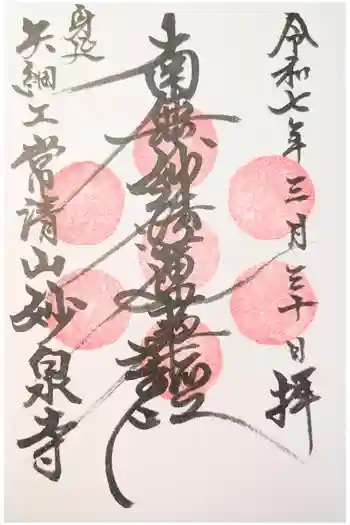 令和七年三月三十日 拝
南無妙法蓮華經
身延
矢細工常清山妙泉寺